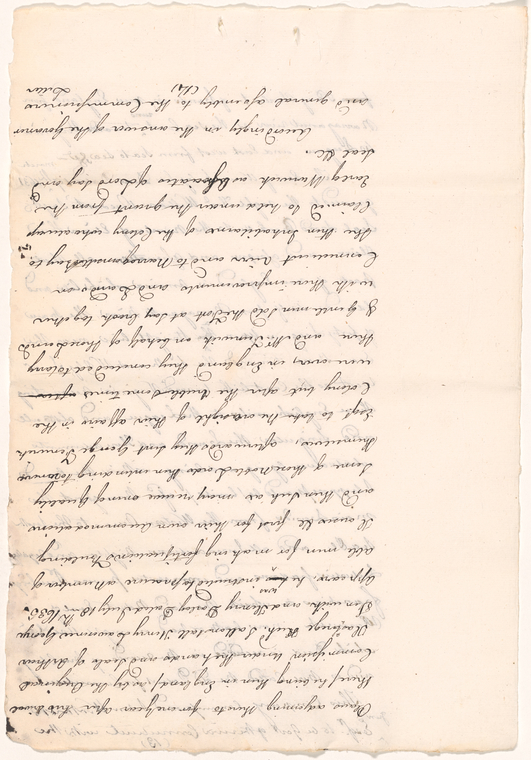 (3)
place adjoyning thereto for one year after his arrival
there/he being then in England/ as by the Original
Commission under the hands and seals of Arthur
Haslerige Rich: Saltonstall Henry Lawrence George
Fenwick and Henry Darley Dated July 18th 1635.
Appears he was instructed to procure a number of
able men for making fortifications building
Houses &c. first for their own Accommodations
and then such as may receive men of quality
Some of those Nobles &c. then intending to come
themselves, afterwards they sent George Fenwick
Esqr. to take the oversight of their affairs in the
Colony but after the troublesome times after
were over, in England they continued
there and Mr. Fenwick on behalf of those Lords and
Gentlemen sold the Fort at Say brook together
with their improvements and Lands on
Connecticut River and to Narraganset Bay to
the then Inhabitants of the Colony who always
Claimed to hold under the grant from the
Earl of Warwick or Associates of Lord Say and
Seal &c.
Accordingly in the answer of the Governor
and general assembly to the Commissioners
Letter